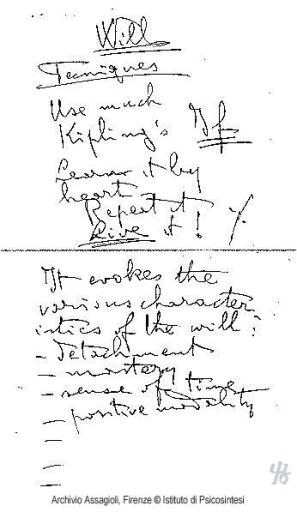 Will
Tecniques
Use much
Kipling's If
Learn it by
heart
Repeat it
Live it! ٪
It evokes the
various character-
istics of the will:
- detachment
- mastery
- sense of time
- positive modality
-
-
-
-
Archivio Assagioli, Firenze © Istituto di Psicosintesi